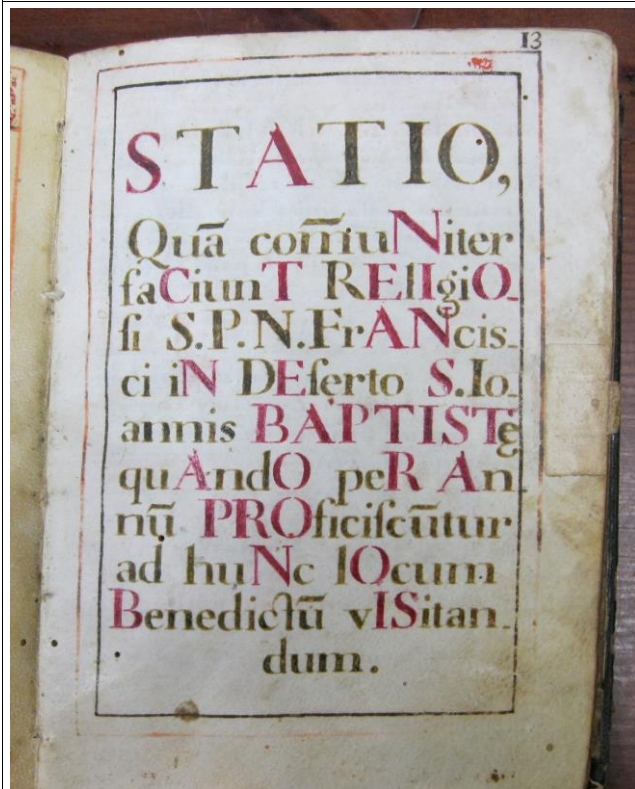 13
STATIO,
Quā com̄uNiter
faCiunT RELIgiO-
ſi S.P.N.FrANcis-
ci iN DEſerto S.Io-
annis BAPTISTę
quAndO peR An-
nū PROficiſcūtur
ad huNc lOcum
Benedictū vISitan-
dum.